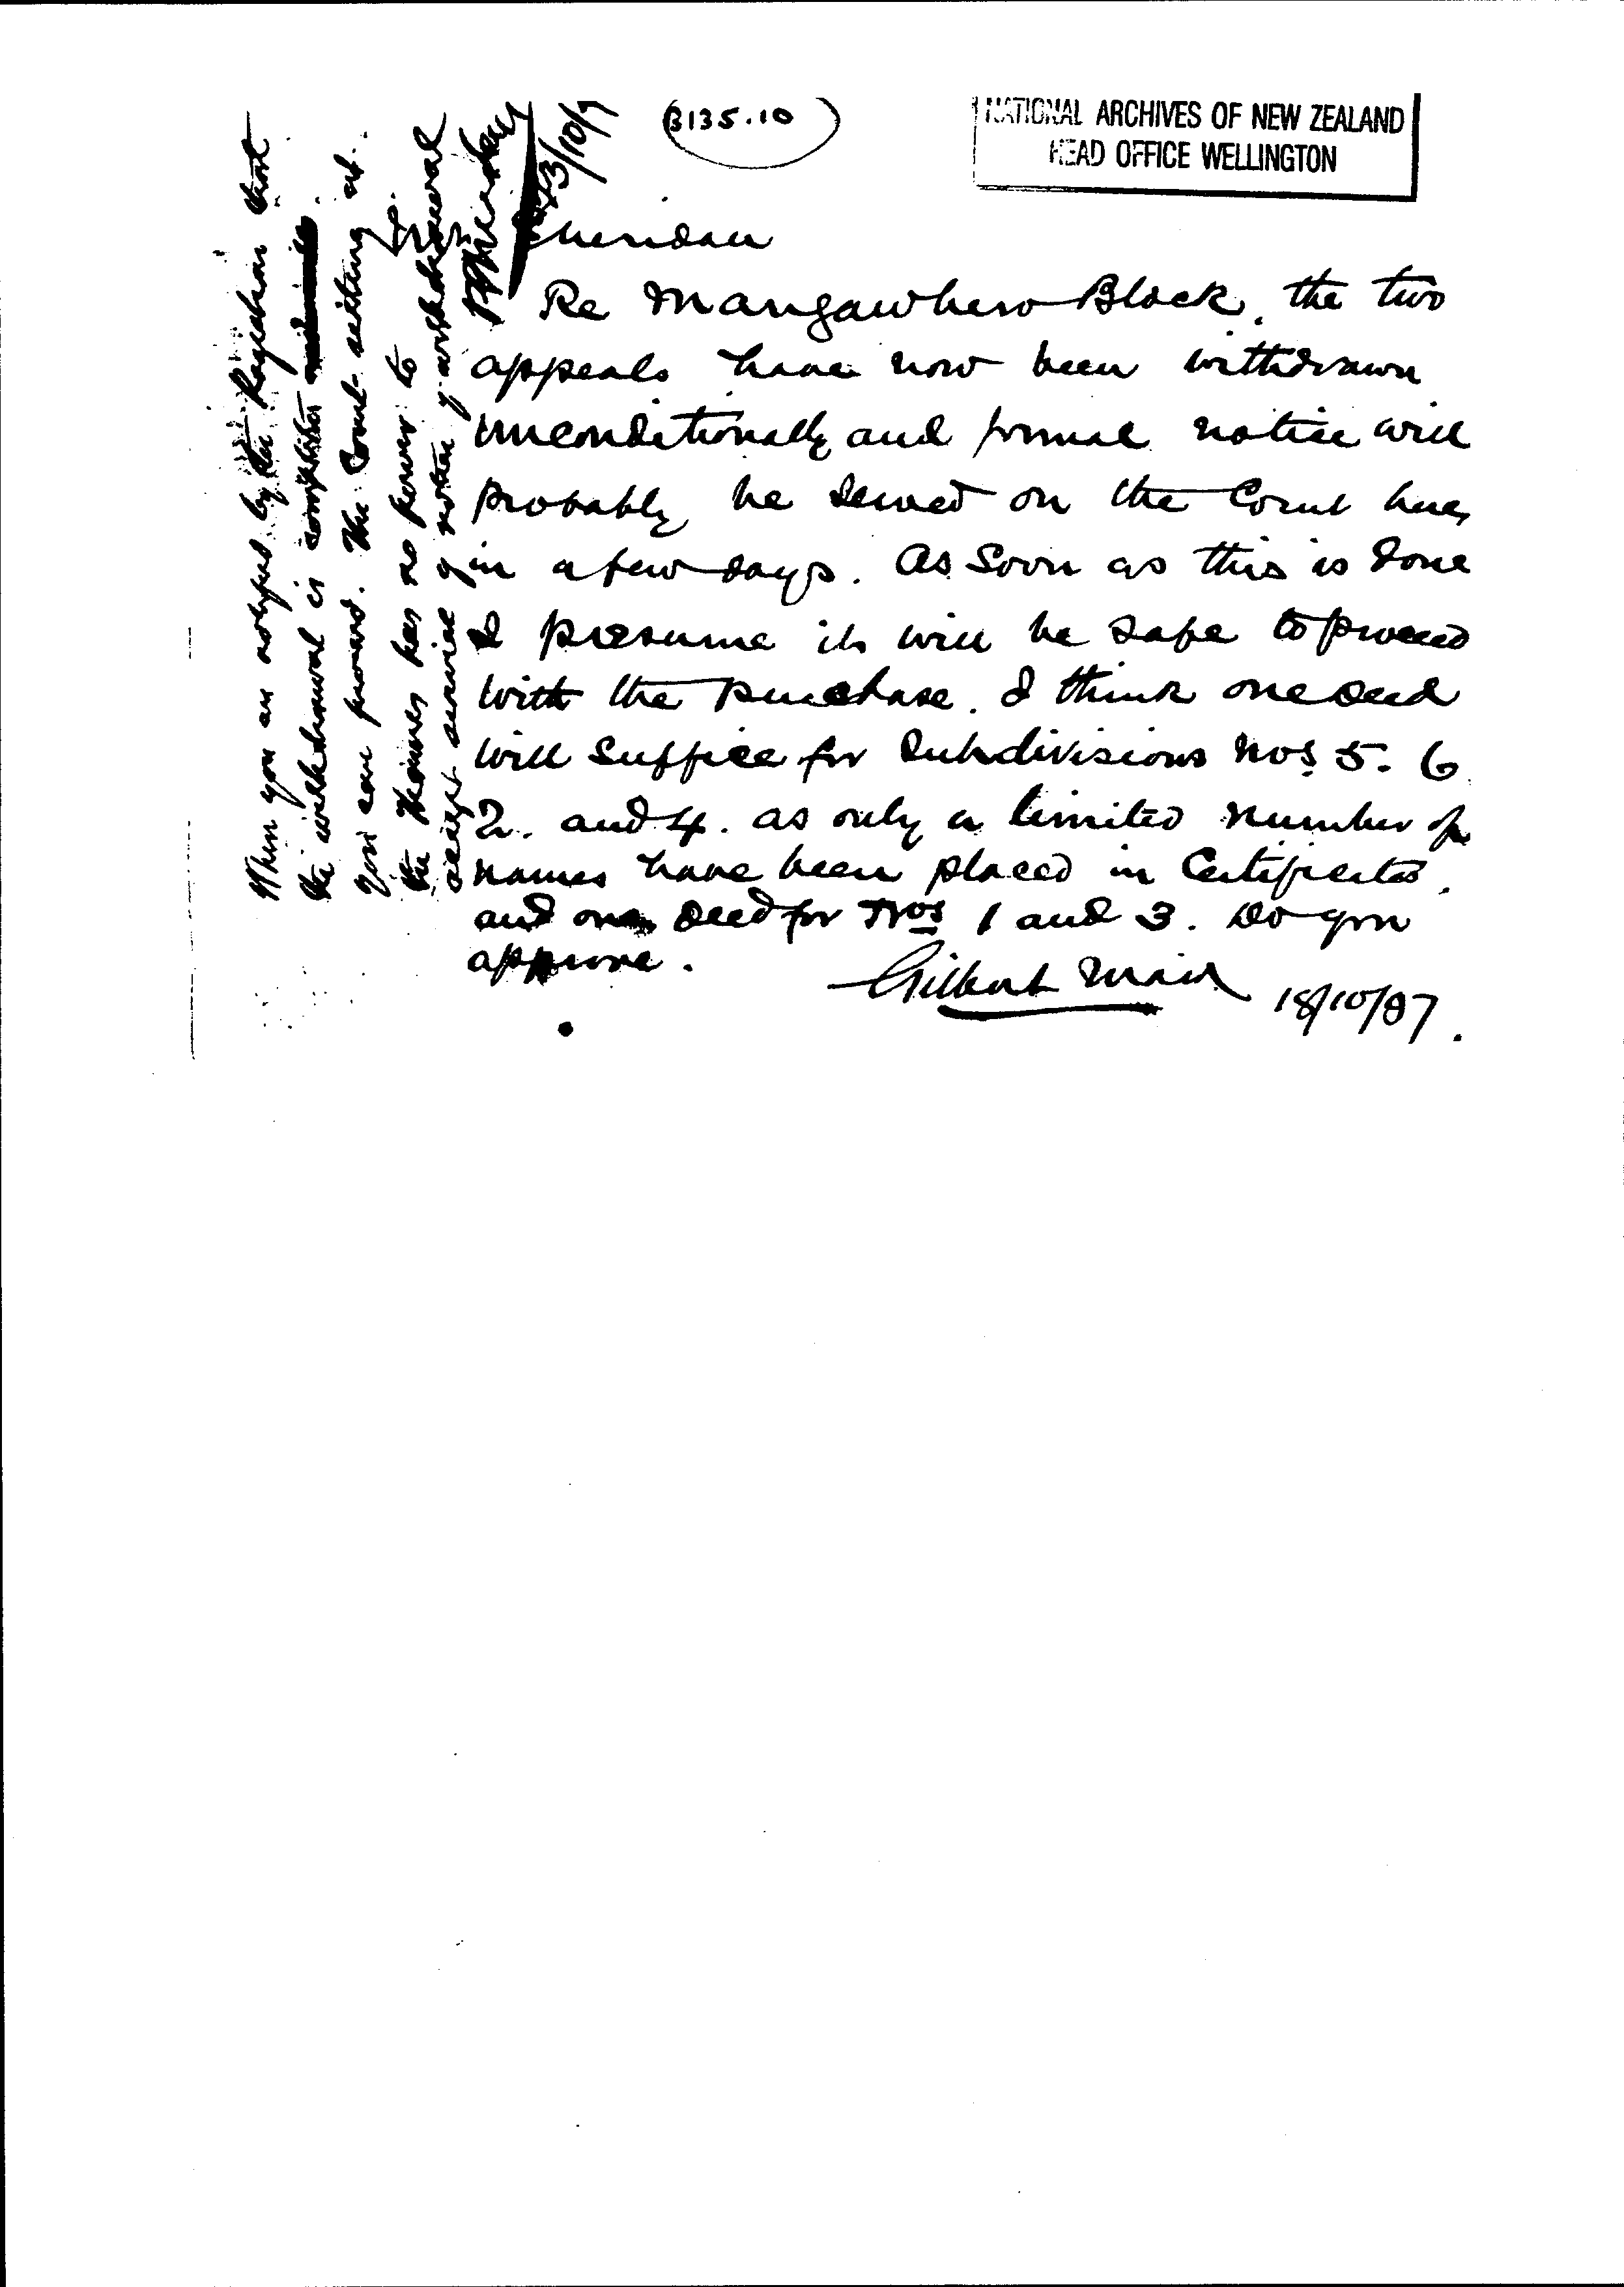 B135.10
NATIONAL ARCHIVES OF NEW ZEALAND
HEAD OFFICE WELLINGTON
Sheridan
Re Mangawhero Block, the two
appeals have now been withdrawn
unconditionally and formal notice will
probably be served on the Court here
in a few days. As soon as this is done
I presume it will be safe to proceed
with the purchase. I think one deed
will suffice for Subdivisions Nos 5. 6
2. and 4. as only a limited number of
names have been placed in Certificates.
and one deed for Nos 1 and 3. Do you
approve.
Gilbert Mair 18/10/97.
When you are notified by the Registrar that
the withdrawal is complete
you can proceed. The Court sitting at
the Thames has no power to
accept service of notice of withdrawal
P Sheridan
23/10/97